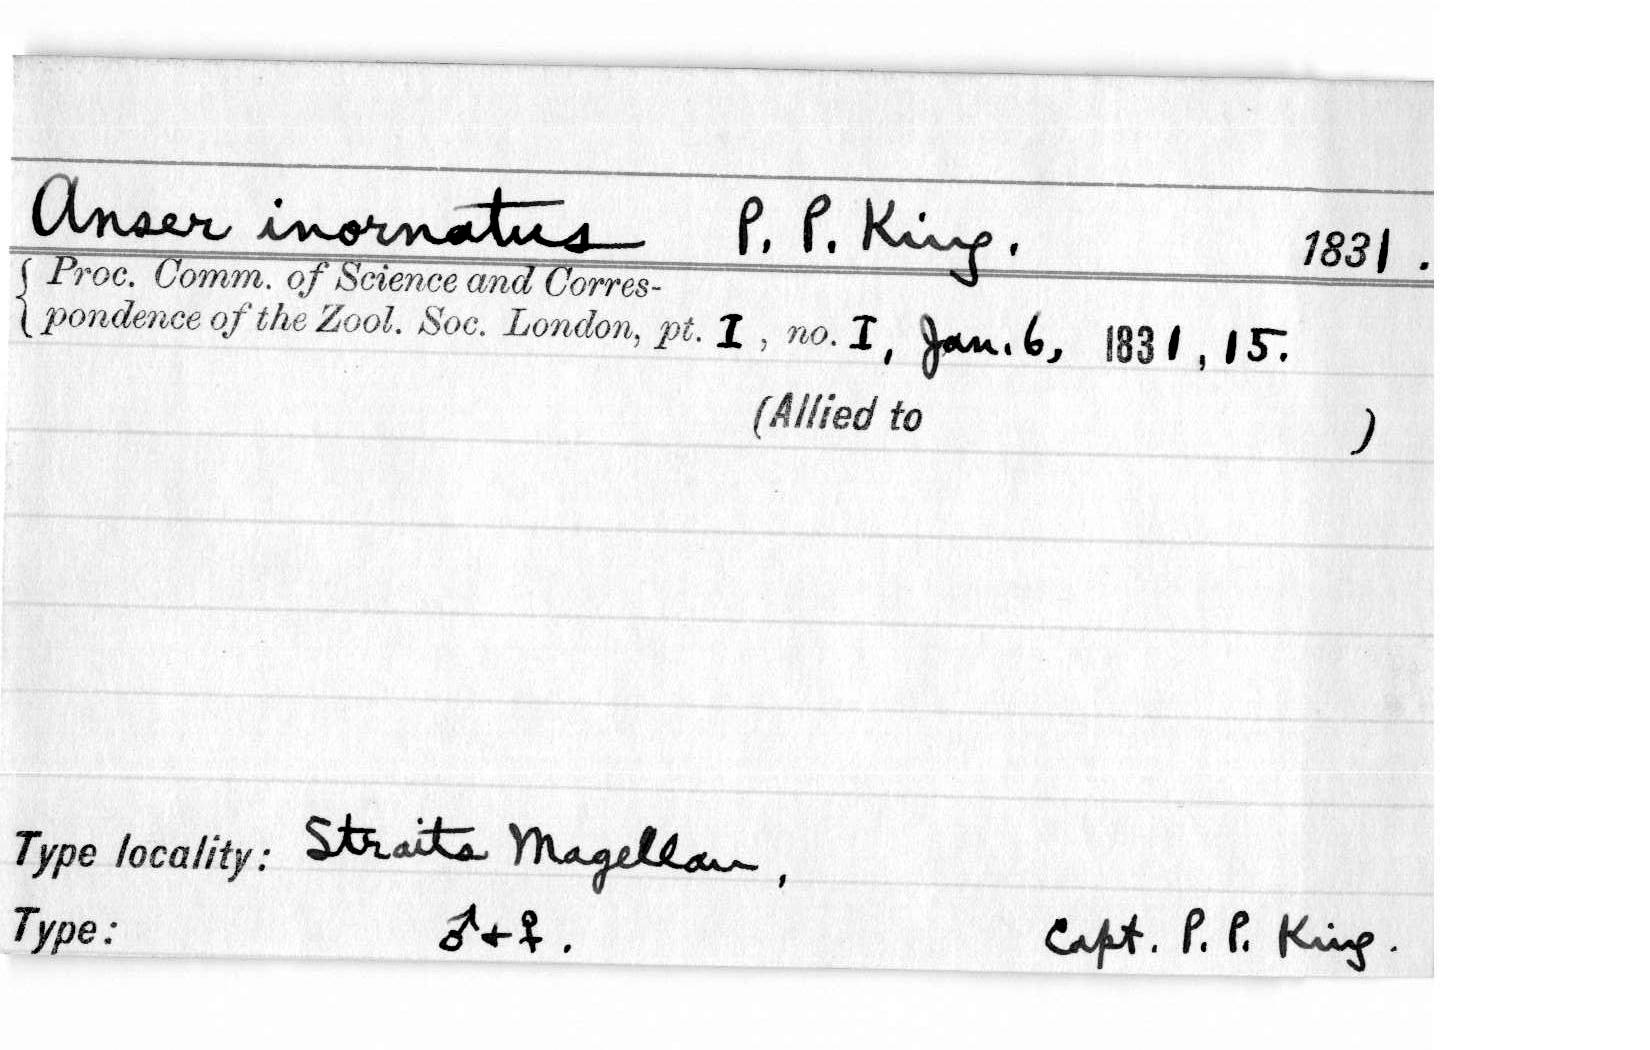 Anser inornatus P. P. King. 1831.
Proc. Comm. of Science and Corres-
pondence of the Zool. Soc. London, pt. I, no. I, Jan. 6, 1831, 15.
(Allied to )
Type locality: Straits Magellan,
Type: ♂ + ♀. Capt. P. P. King.